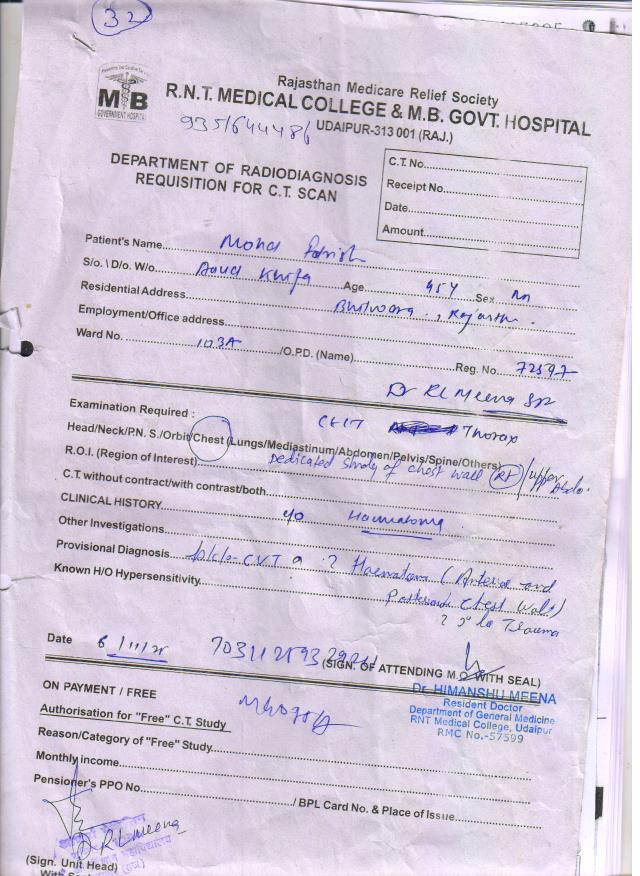 32
Rajasthan Medicare Relief Society
MB
GOVERNMENT HOSPITAL
R.N.T. MEDICAL COLLEGE & M.B. GOVT. HOSPITAL
UDAIPUR-313 001 (RAJ.)
DEPARTMENT OF RADIODIAGNOSIS
REQUISITION FOR C.T. SCAN
C.T. No.
Receipt No.
Date
Amount
Patient's Name Mohd
S/o. \ D/o. W/o Age 45Y Sex m
Residential Address
Employment/Office address
Ward No. 103A /O.P.D. (Name) Reg. No. 72597
Dr RL Meena Sir
Examination Required : CECT Thorax
Head/Neck/P.N. S./Orbit/Chest (Lungs/Mediastinum/Abdomen/Pelvis/Spine/Others)
R.O.I. (Region of Interest) Dedicated study of chest wall (RT) /upper Abdo.
C.T. without contract/with contrast/both
CLINICAL HISTORY Haematoma
Other Investigations
Provisional Diagnosis ? Haematoma (Anterior and
Known H/O Hypersensitivity Posterior Chest Wall)
? 2° to Trauma
Date 6/11/25
(SIGN. OF ATTENDING M.O. WITH SEAL)
Dr. HIMANSHU MEENA
Resident Doctor
Department of General Medicine
RNT Medical College, Udaipur
RMC No.-57599
ON PAYMENT / FREE
Authorisation for "Free" C.T. Study
Reason/Category of "Free" Study
Monthly income
Pensioner's PPO No. / BPL Card No. & Place of Issue
Dr RL Meena
(Sign. Unit Head)